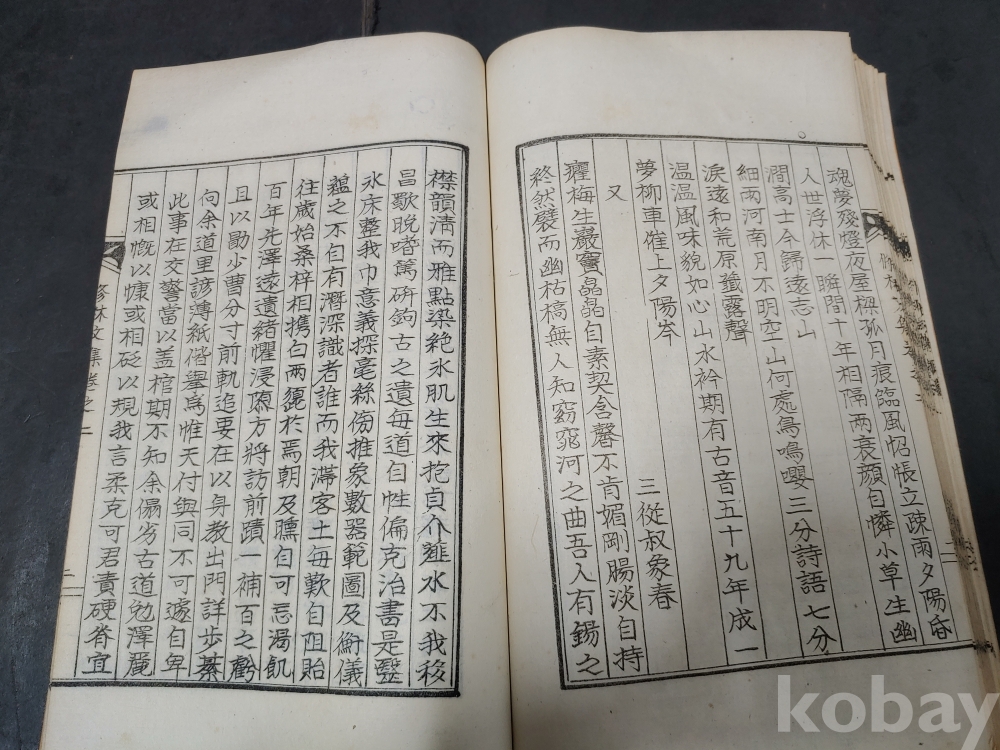 魂夢殘燈夜屋樑孤月痕臨風怊悵立疎雨夕陽昏
人世浮休一瞬間十年相隔兩衰顔自憐小草生幽
澗高士今歸遠志山
細雨河南月不明空山何處鳥鳴嚶三分詩語七分
淚遠和荒原䪥露聲
温温風味貌如心山水衿期有古音五十九年成一
夢柳車催上夕陽岑
又 三從叔象春
癯梅生巖竇皛皛自素契含馨不肯媚剛腸淡自持
終然襞而幽枯槁無人知窈窕河之曲吾人有錫之
襟韻淸而雅點染絶氷肌生來抱貞介涯水不我移
昌歌晩嗜篤硏鉤古之遺每道自性偏克治書是毉
氷床整我巾意義探毫絲傍推象數器範圖及衡儀
蘊之不自有潛深識者誰而我滯客土每歎自阻貽
往歲始桑梓相携白兩鬍於焉朝及曛自可忘渴飢
百年先澤遠遺緖懼浸隳方將訪前蹟一補百之虧
且以勗少曹分寸前軌追要在以身敎出門詳步綦
向余道里諺溥紙偕擧爲惟天付與同不可遽自卑
此事在交警當以盖棺期不知余偏劣古道勉澤麗
或相慨以慷或相砭以規我言柔克可君責硬脊宜
修林文集卷之二
二
kobay